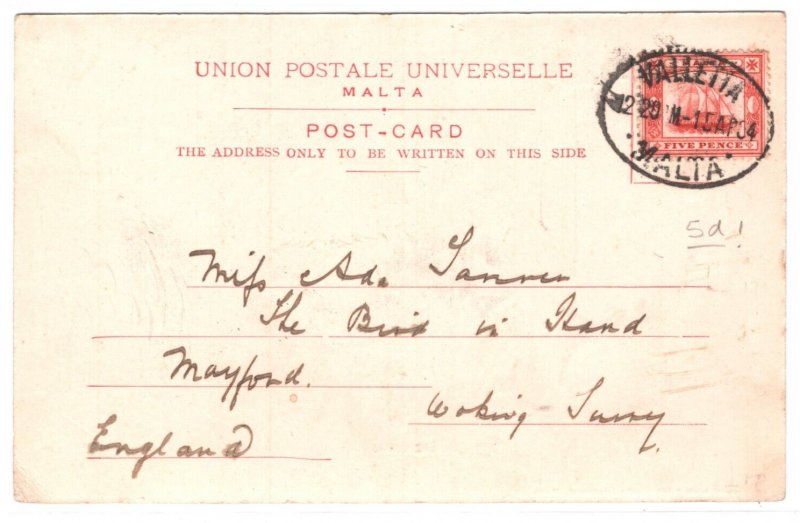 UNION POSTALE UNIVERSELLE
MALTA
POST-CARD
THE ADDRESS ONLY TO BE WRITTEN ON THIS SIDE
VALLETTA
12 20 PM-15AP04
MALTA
FIVE PENCE
5d!
Miss Ada
The Bird in Hand
Mayford.
Woking Surrey
England